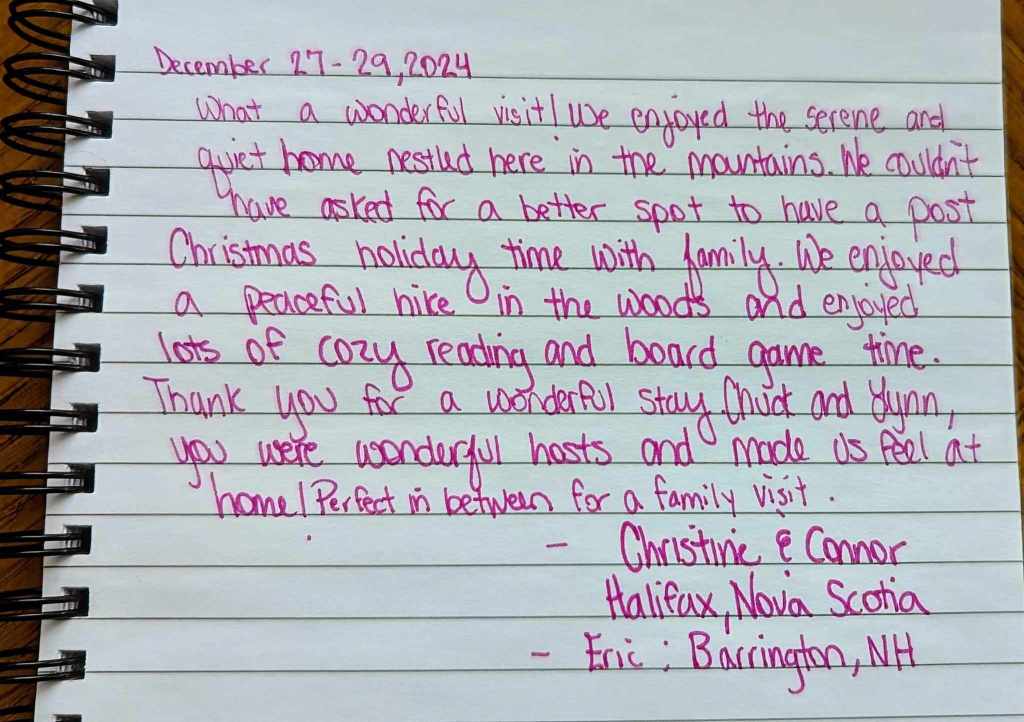 December 27-29, 2024
What a wonderful visit! We enjoyed the serene and
quiet home nestled here in the mountains. We couldn't
have asked for a better spot to have a post
Christmas holiday time with family. We enjoyed
a peaceful hike in the woods and enjoyed
lots of cozy reading and board game time.
Thank you for a wonderful stay Chuck and Lynn,
you were wonderful hosts and made us feel at
home! Perfect in between for a family visit.
- Christine & Connor
Halifax, Nova Scotia
- Eric : Barrington, NH